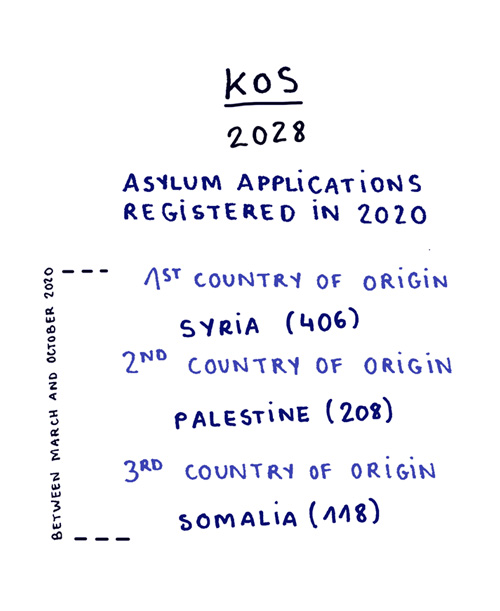 KOS
2028
ASYLUM APPLICATIONS
REGISTERED IN 2020
BETWEEN MARCH AND OCTOBER 2020
1ST COUNTRY OF ORIGIN
SYRIA (406)
2ND COUNTRY OF ORIGIN
PALESTINE (208)
3RD COUNTRY OF ORIGIN
SOMALIA (118)